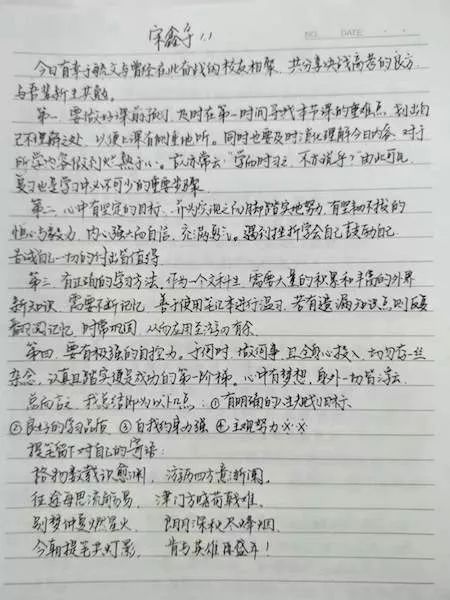 宋鑫宇 1.1
NO. DATE
今日有幸于毓文与曾经在此奋战的校友相聚, 共分享决战高考的良方,
与吾辈新生共勉。
第一, 要做好课前预习, 及时在第一时间寻找本节课的重难点, 划出自
己不理解之处, 以便上课有侧重地听。同时也要及时消化理解今日内容, 对于
所学内容做到烂熟于心。古语常云:"学而时习之, 不亦说乎?"由此可见,
复习也是学习中必不可少的重要步骤。
第二, 心中有坚定的目标, 并为实现之而脚踏实地努力, 有坚韧不拔的
恒心与毅力, 内心强大的自信, 充满勇气。遇到挫折学会自己鼓励自己,
告诫自己一切的付出皆值得
第三, 有正确的学习方法, 作为一个文科生, 需要大量的积累和丰富的外界
新知识, 需要不断记忆, 善于使用笔记本进行温习, 若有遗漏知识点则反复
翻阅记忆, 时常巩固, 从而应用至游刃有余
第四, 要有极强的自控力。于何时, 做何事, 且全身心投入, 切勿存一丝
杂念, 认真且踏实便是成功的第一阶梯。心中有梦想, 身外一切皆浮云
总而言之, 我总结即为以下四点: ①有明确的人生规划目标
②良好的学习品质 ③自我约束力强 ④主观努力
提笔留下对自己的寄语:
格物数载识愈渊, 游历四方意渐阑。
征途每思流俗易, 津门方晓荷戟难。
别梦
今朝提笔共灯影, 肯与英雄再盛年!